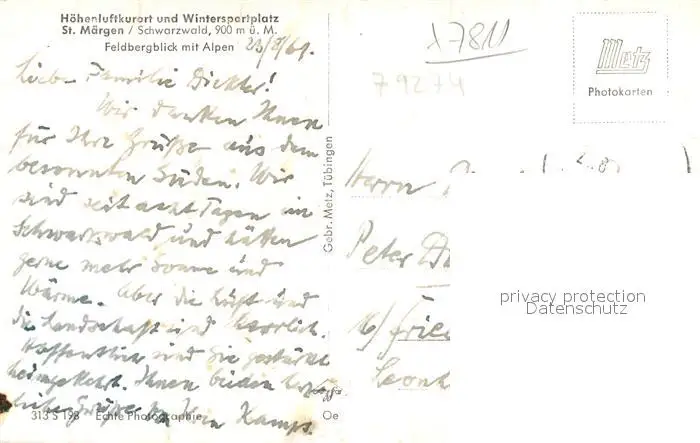 Höhenluftkurort und Wintersportplatz
St. Märgen / Schwarzwald, 900 m ü. M.
Feldbergblick mit Alpen
Liebe Familie
Wir danken Ihnen
für Ihre Grüße aus dem
besonnten Süden. Wir
sind seit acht Tagen im
Schwarzwald und hätten
gerne mehr Sonne und
Wärme. Aber die Luft und
die Landschaft sind herrlich.
Hoffentlich sind Sie gestärkt
heimgekehrt. Ihnen beiden
liebe Grüße
313 S 198 Echte Photographie
Oe
Gebr. Metz, Tübingen
79274
Metz
Photokarten
Herrn
Peter
16)
privacy protection
Datenschutz